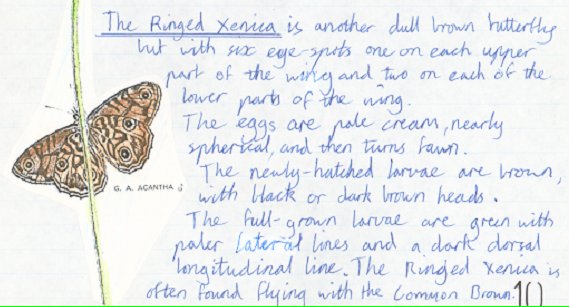 The Ringed Xenica is another dull brown butterfly
but with six eye-spots one on each upper
part of the wing and two on each of the
lower parts of the wing.
The eggs are pale cream, nearly
spherical, and then turns fawn.
The newly-hatched larvae are brown,
with black or dark brown heads.
G. A. ACANTHA ♂
The full-grown larvae are green with
paler lateral lines and a dark dorsal
longitudinal line. The Ringed Xenica is
often found flying with the Common Brown.
10